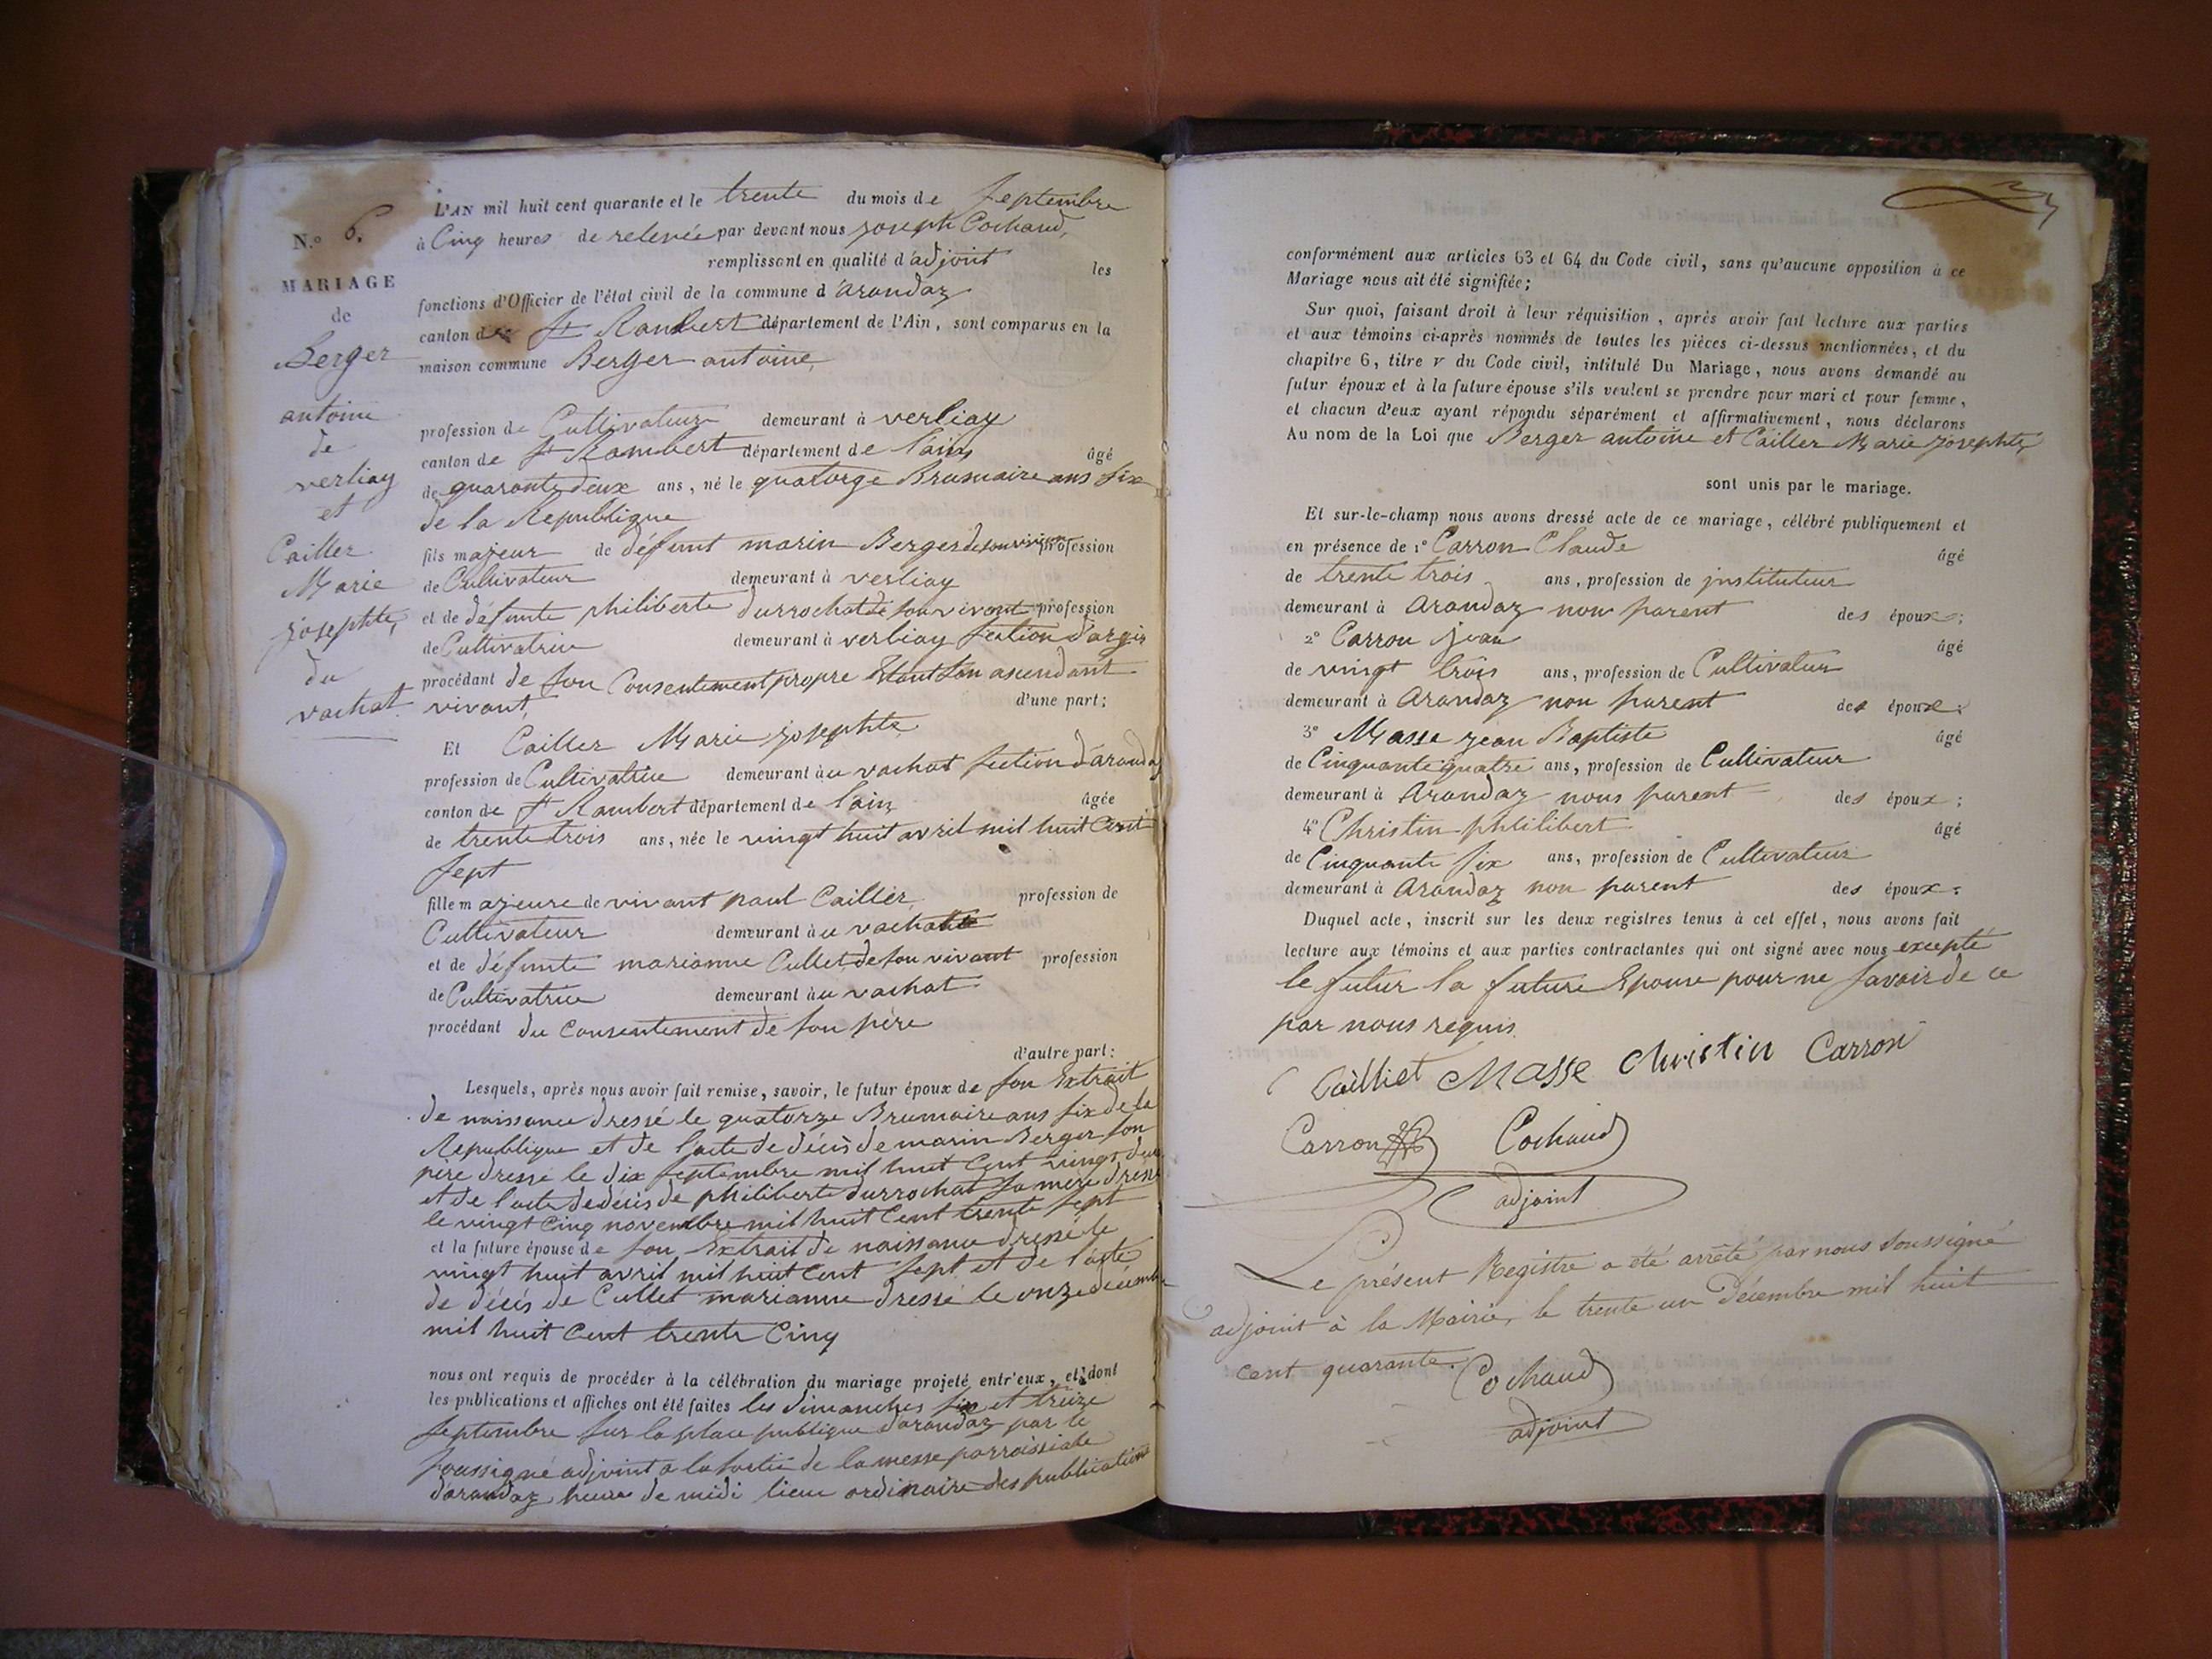 N.° 6.
MARIAGE
de
Berger
antoine
de
verliay
et
Cailler
Marie
josephte,
du
vachat
L'AN mil huit cent quarante et le trente du mois de septembre
à Cinq heures de relevée par devant nous joseph Cochaud,
remplissant en qualité d'adjoint les
fonctions d'Officier de l'état civil de la commune d'arandaz
canton de St Rambert département de l'Ain, sont comparus en la
maison commune Berger antoine,
profession de Cultivateur demeurant à verliay
canton de St Rambert département de l'ain, âgé
de quarante deux ans, né le quatorze Brumaire ans six
de la Republique
fils majeur de défunt marin Berger de son vivant profession
de Cultivateur demeurant à verliay
et de défunte philiberte durrochat de son vivant profession
de Cultivatrice demeurant à verliay section d'argis
procédant de son Consentement propre Etant san ascendant
vivant, d'une part;
Et Cailler Marie josephte
profession de Cultivatrice demeurant au vachat section d'arandaz
canton de St Rambert département de lain, âgée
de trente trois ans, née le vingt huit avril mil huit Cent
sept
fille majeure de vivant paul Cailler, profession de
Cultivateur demeurant au vachat
et de défunte marianne Cullet, de son vivant profession
de Cultivatrice demeurant au vachat
procédant du Consentement de son père
d'autre part:
Lesquels, après nous avoir fait remise, savoir, le futur époux de son Extrait
de naissance dressé le quatorze Brumaire ans six de la
Republique et de l'acte de décès de marin Berger son
père dressé le dix septembre mil huit Cent vingt deux
et de l'acte de décès de philiberte durrochat sa mère dressé
le vingt Cinq novembre mil huit Cent trente sept
et la future épouse de son Extrait de naissance dressé le
vingt huit avril mil huit Cent sept et de l'acte
de décès de Cullet marianne dressé le onze décembre
mil huit Cent trente Cinq
nous ont requis de procéder à la célébration du mariage projeté entr'eux, et dont
les publications et affiches ont été faites les dimanches six et treize
septembre sur la place publique darandaz par le
soussigné adjoint a la sortie de la messe parroissiale
darandaz heure de midi lieu ordinaire des publications
conformément aux articles 63 et 64 du Code civil, sans qu'aucune opposition à ce
Mariage nous ait été signifiée;
Sur quoi, faisant droit à leur réquisition, après avoir fait lecture aux parties
et aux témoins ci-après nommés de toutes les pièces ci-dessus mentionnées, et du
chapitre 6, titre v du Code civil, intitulé Du Mariage, nous avons demandé au
futur époux et à la future épouse s'ils veulent se prendre pour mari et pour femme,
et chacun d'eux ayant répondu séparément et affirmativement, nous déclarons
Au nom de la Loi que Berger antoine et Cailler Marie josephte,
sont unis par le mariage.
Et sur-le-champ nous avons dressé acte de ce mariage, célébré publiquement et
en présence de 1° Carron Claude âgé
de trente trois ans, profession de jnstituteur
demeurant à Arandaz non parent des époux;
2° Carron jean âgé
de vingt trois ans, profession de Cultivateur
demeurant à Arandaz non parent des époux;
3° Masse jean Baptiste âgé
de Cinquante quatre ans, profession de Cultivateur
demeurant à Arandaz nous parent des époux;
4° Christin philibert âgé
de Cinquante six ans, profession de Cultivateur
demeurant à Arandaz non parent des époux:
Duquel acte, inscrit sur les deux registres tenus à cet effet, nous avons fait
lecture aux témoins et aux parties contractantes qui ont signé avec nous excepté
le futur la future Epouse pour ne savoir de ce
par nous requis.
Cailliet Masse Christin Carron
Carron Cochaud
adjoint
Le présent Registre a été arrêté par nous soussigné
adjoint à la Mairie, le trente un Décembre mil huit
cent quarante. Cochaud
adjoint